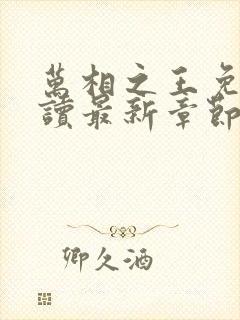 萬相之王免
讀最新章節
卿久酒